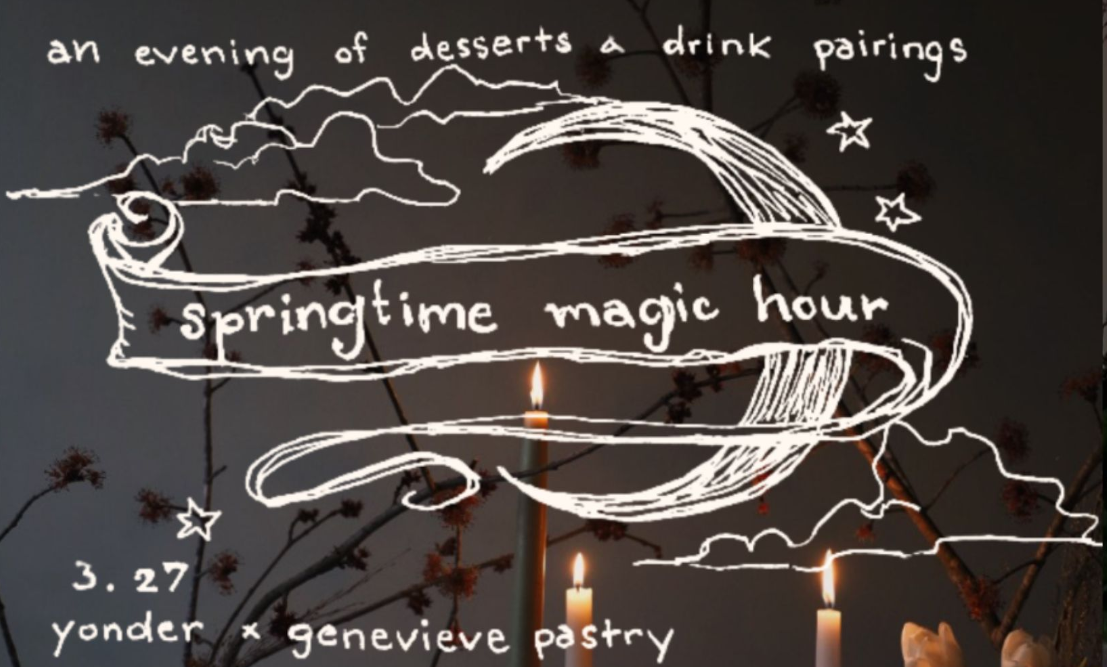 an evening of desserts & drink pairings
springtime magic hour
3.27
yonder × genevieve pastry